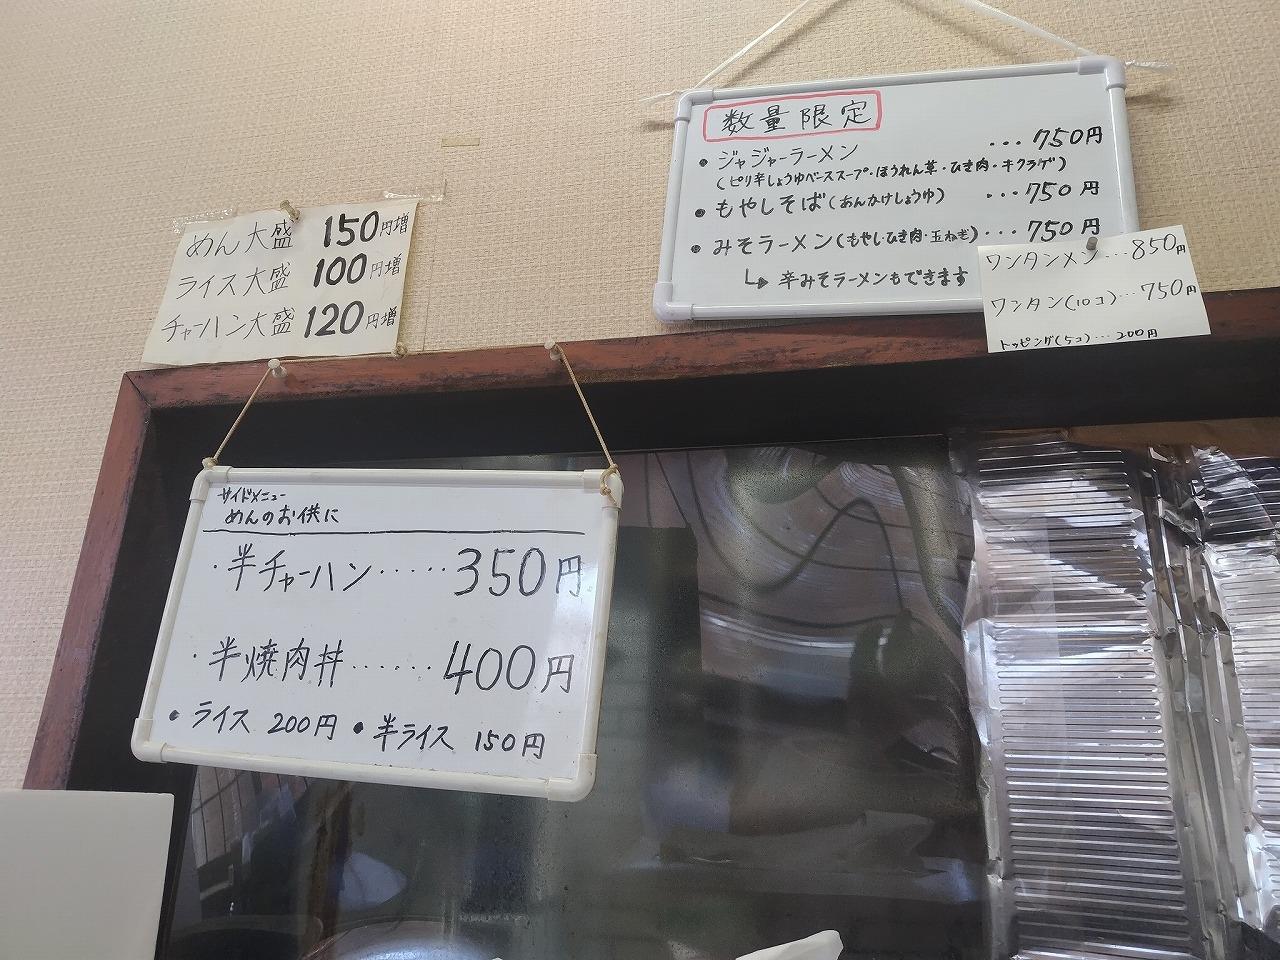 めん大盛 150円増
ライス大盛 100円増
チャーハン大盛 120円増
数量限定
・ジャジャーラーメン ...750円
(ピリ辛しょうゆベーススープ・ほうれん草・ひき肉・キクラゲ)
・もやしそば(あんかけしょうゆ) ...750円
・みそラーメン(もやし・ひき肉・玉ねぎ)...750円
↳辛みそラーメンもできます
ワンタンメン...850円
ワンタン(10コ)...750円
トッピング(5コ)...200円
サイドメニュー
めんのお供に
・半チャーハン.....350円
・半焼肉丼......400円
・ライス 200円 ・半ライス 150円